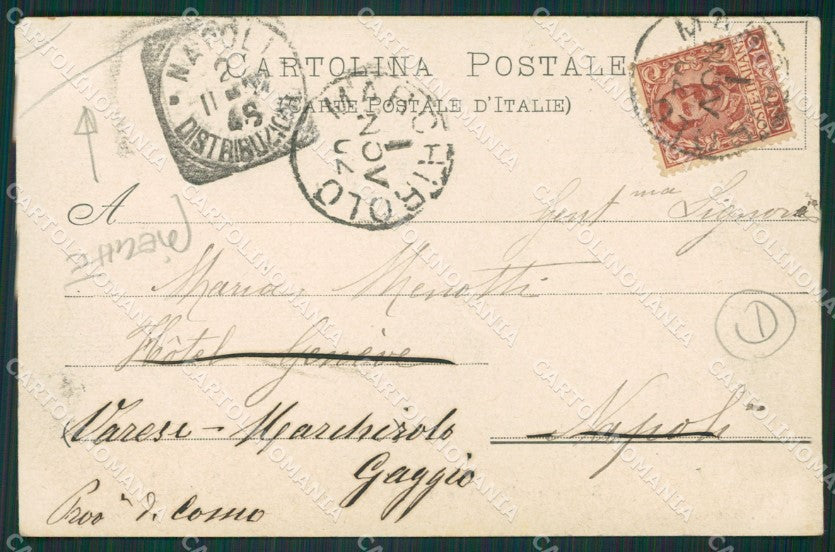 CARTOLINA POSTALE
(CARTE POSTALE D'ITALIE)
NAPOLI
DISTRIBUZIONE
MARCHIROLO
1
NOV
02
A Gent ma Signora
Maria Menotti
Hôtel Genève
Napoli
Varese - Marchirolo
Gaggio
Prov a d. Como
1
CARTOLINOMANIA